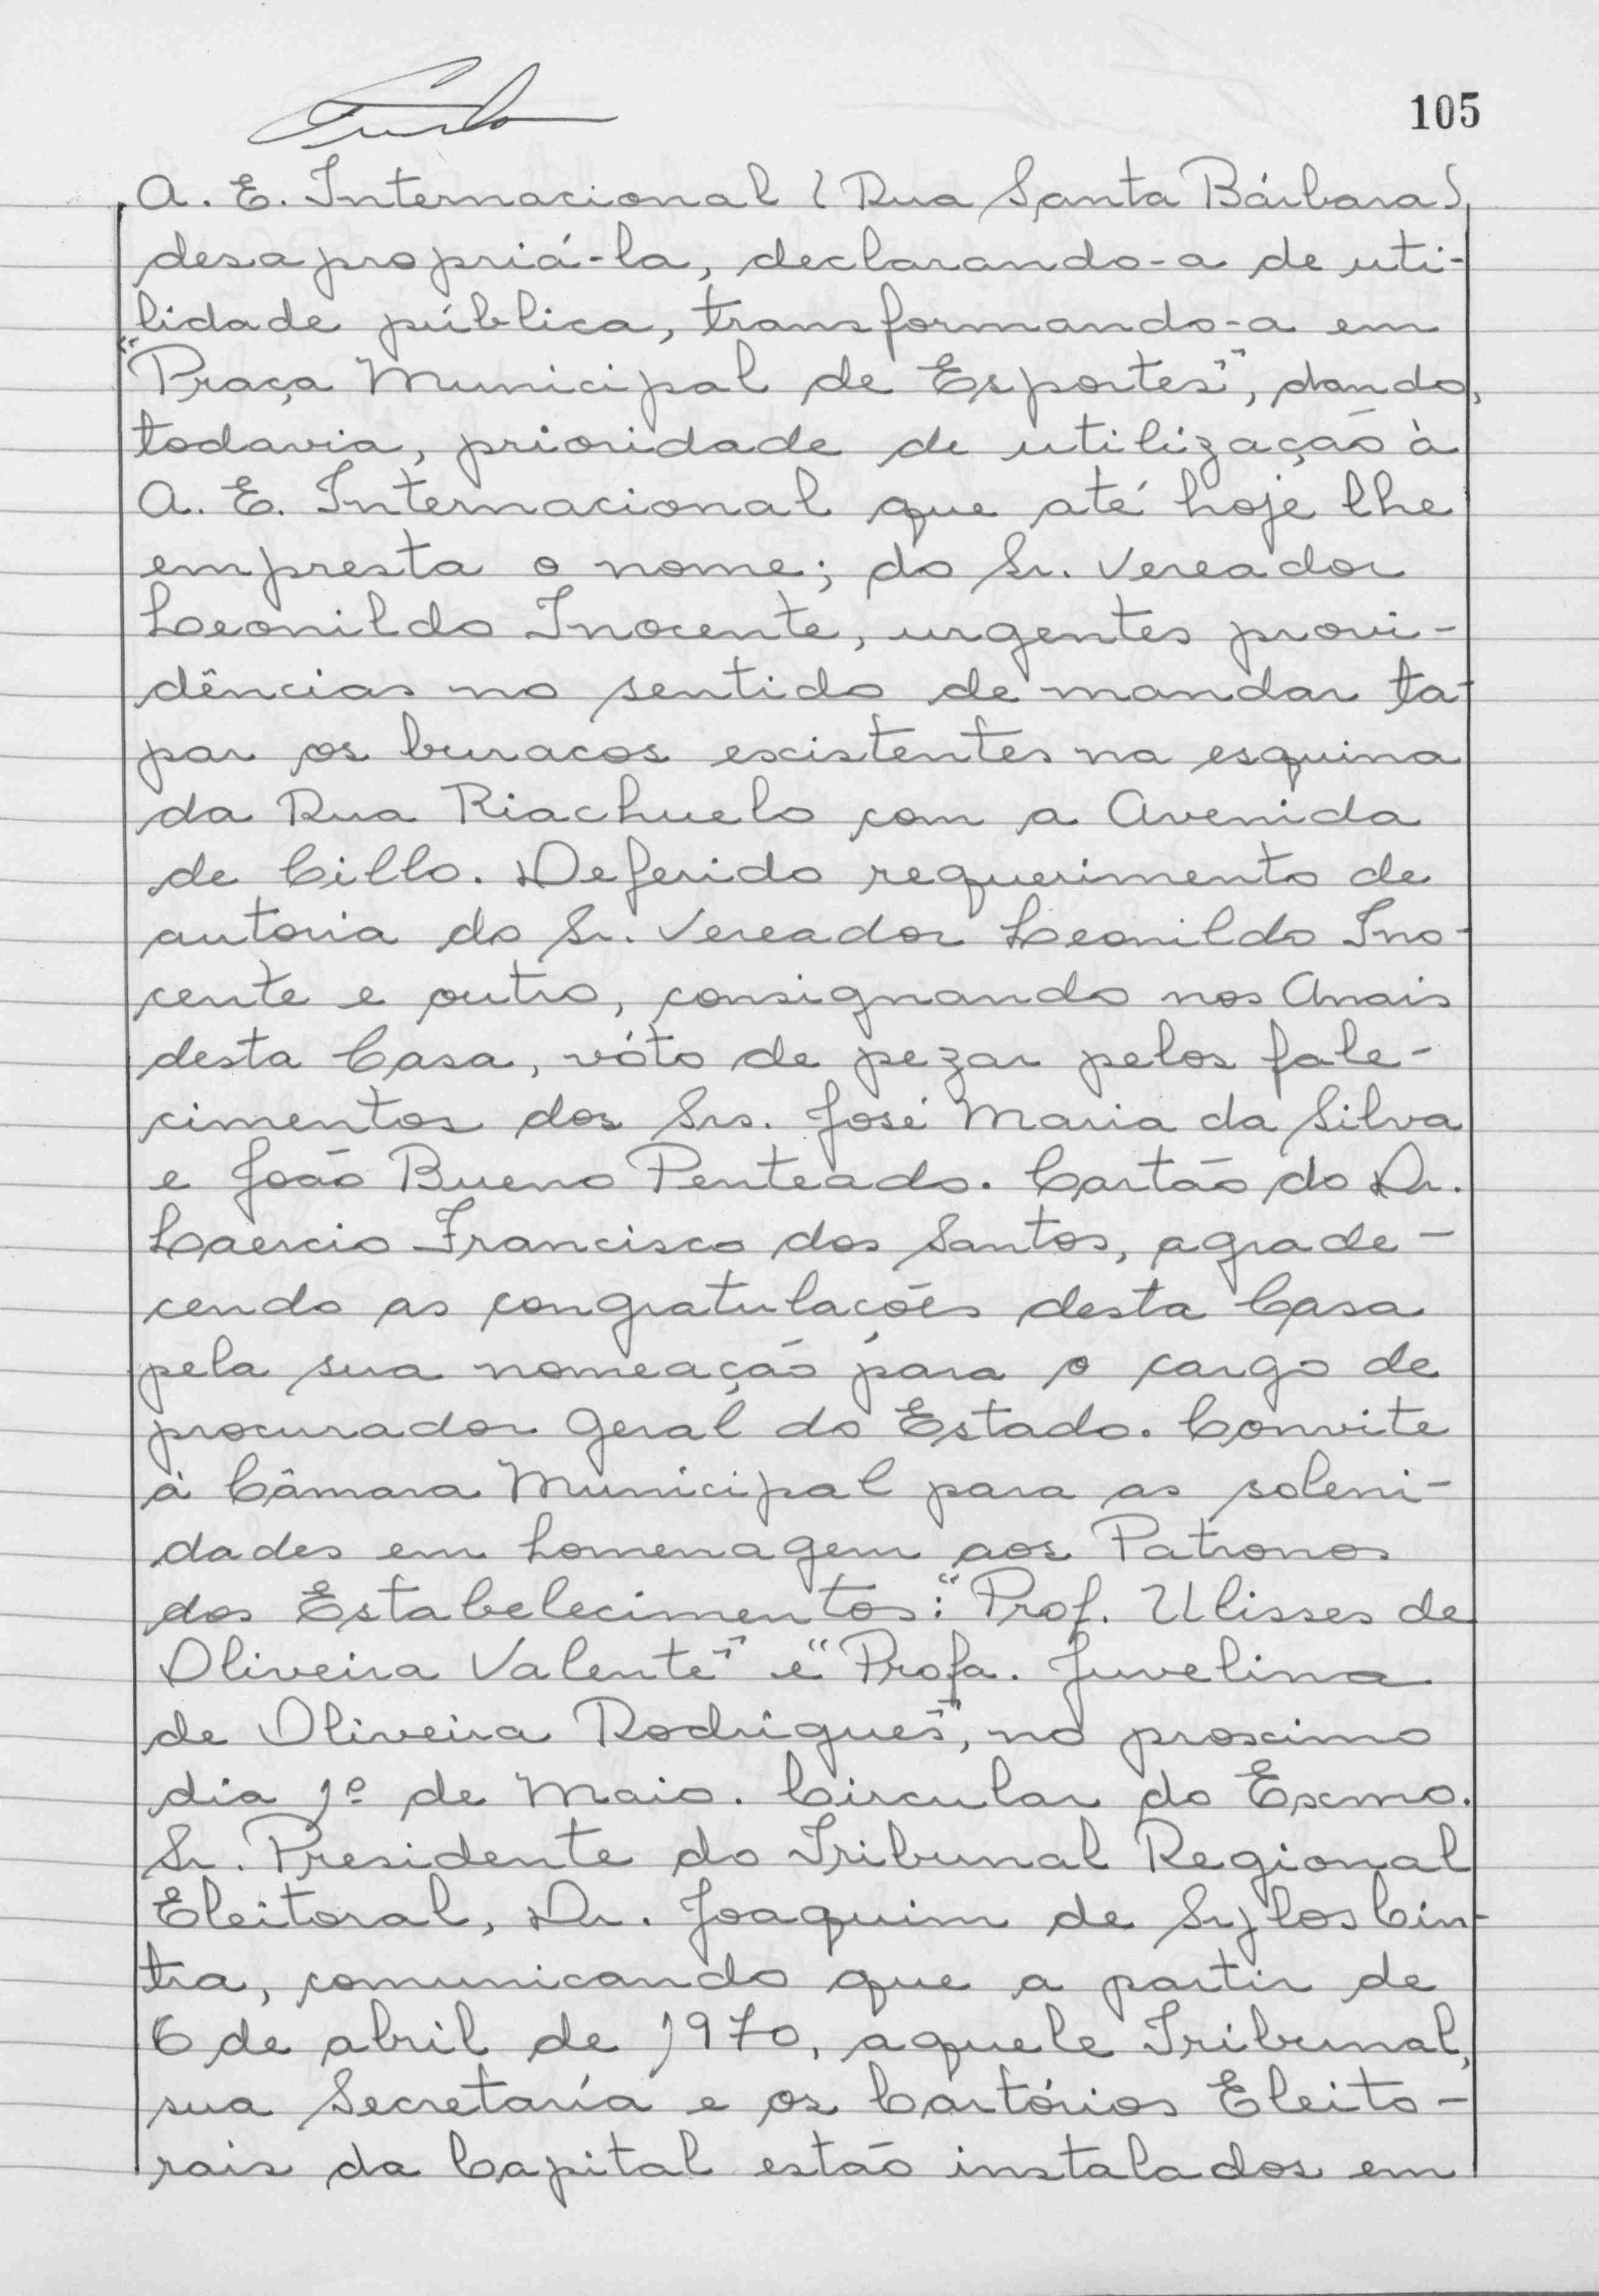 105
A. E. Internacional (Rua Santa Bárbara)
desapropriá-la, declarando-a de uti-
lidade pública, transformando-a em
"Praça Municipal de Esportes", dando,
todavia, prioridade de utilização à
A. E. Internacional que até hoje lhe
empresta o nome; do Sr. Vereador
Leonildo Inocente, urgentes provi-
dências no sentido de mandar ta-
par os buracos existentes na esquina
da Rua Riachuelo com a Avenida
de Cillo. Deferido requerimento de
autoria do Sr. Vereador Leonildo Ino-
cente e outro, consignando nos Anais
desta Casa, vóto de pezar pelos fale-
cimentos dos Srs. José Maria da Silva
e João Bueno Penteado. Cartão do Dr.
Laercio Francisco dos Santos, agrade-
cendo as congratulações desta Casa
pela sua nomeação para o cargo de
procurador geral do Estado. Convite
à Câmara Municipal para as soleni-
dades em homenagem aos Patronos
dos Estabelecimentos: "Prof. Ulisses de
Oliveira Valente" e "Profa. Juvelina
de Oliveira Rodrigues", no proximo
dia 1º de Maio. Circular do Exmo.
Sr. Presidente do Tribunal Regional
Eleitoral, Dr. Joaquim de Sylos Cin-
tra, comunicando que a partir de
6 de abril de 1970, aquele Tribunal,
sua Secretaría e os Cartórios Eleito-
rais da Capital estão instalados em